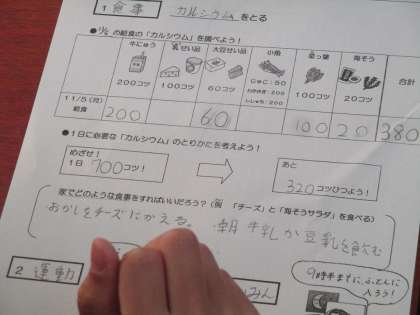 1 食事 カルシウムをとる
●11/5の給食の「カルシウム」を調べよう！
牛にゅう 乳せい品 大豆せい品 小魚 菜っ葉 海そう 合計
200コツ 100コツ 60コツ 100コツ 20コツ
11/5(月)
給食 200 60 100 20 380
●1日に必要な「カルシウム」のとりかたを考えよう！
めざせ！
1日 700コツ！
あと
320コツひつよう！
家でどのような食事をすればいいだろう？(例 「チーズ」と「海そうサラダ」を食べる)
おかしをチーズにかえる。 朝 牛乳か豆乳を飲む
2 運動
9時半までに、ふとんに
入ろう！